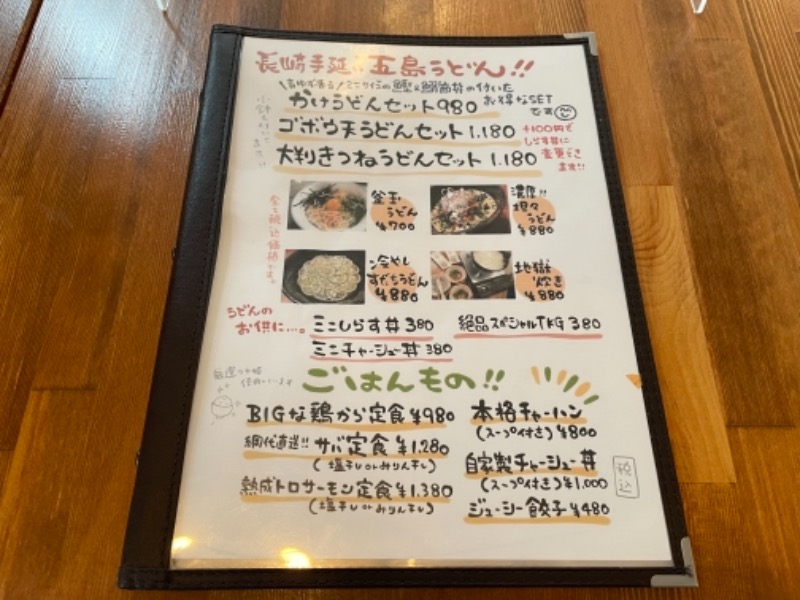 長崎手延べ五島うどん!!
ミニサイズの鰹&鰯節丼の付いた
お得なSET
です
かけうどんセット980
ゴボウ天うどんセット1.180
大判きつねうどんセット1.180
+100円で
しらす丼に
変更でき
ます!!
全て税込価格です。
釜玉
うどん
¥700
濃厚!!
担々
うどん
¥880
冷やし
すだちうどん
¥880
地獄
炊き
¥880
うどんの
お供に…。
ミニしらす丼 380
絶品スペシャルTKG 380
ミニチャーシュー丼 380
ごはんもの!!
BIGな鶏から定食 ¥980
網代直送!! サバ定食 ¥1.280
(塩干し or みりん干し)
熟成トロサーモン定食 ¥1.380
(塩干し or みりん干し)
本格チャーハン
(スープ付き) ¥800
自家製チャーシュー丼
(スープ付き) ¥1.000
ジューシー餃子 ¥480
税込